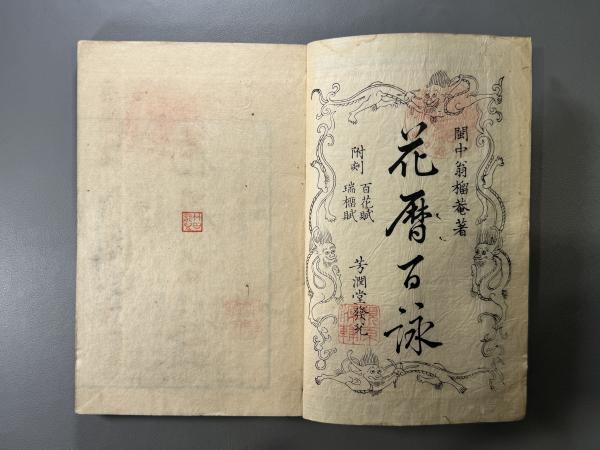 閩中翁榴菴著
花暦百詠
附刻 百花賦
瑞榴賦
芳潤堂發兌